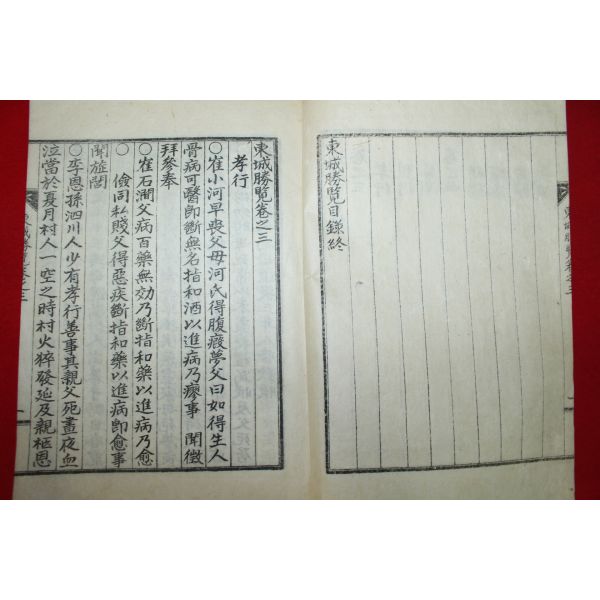 東城勝覽目錄終
東城勝覽卷之三
東城勝覽卷之三
孝行
○崔小河早喪父母河氏得腹瘕夢父曰如得生人
骨病可醫卽斷無名指和酒以進病乃瘳事 聞徵
拜參奉
○崔石澗父病百藥無効乃斷指和藥以進病乃愈
○儉同私賤父得惡疾斷指和藥以進病卽愈事
聞旌閭
○李恩孫泗川人少有孝行善事其親父死晝夜血
泣當於夏月村人一空之時村火猝發延及親柩恩
東城勝覽卷之三
一